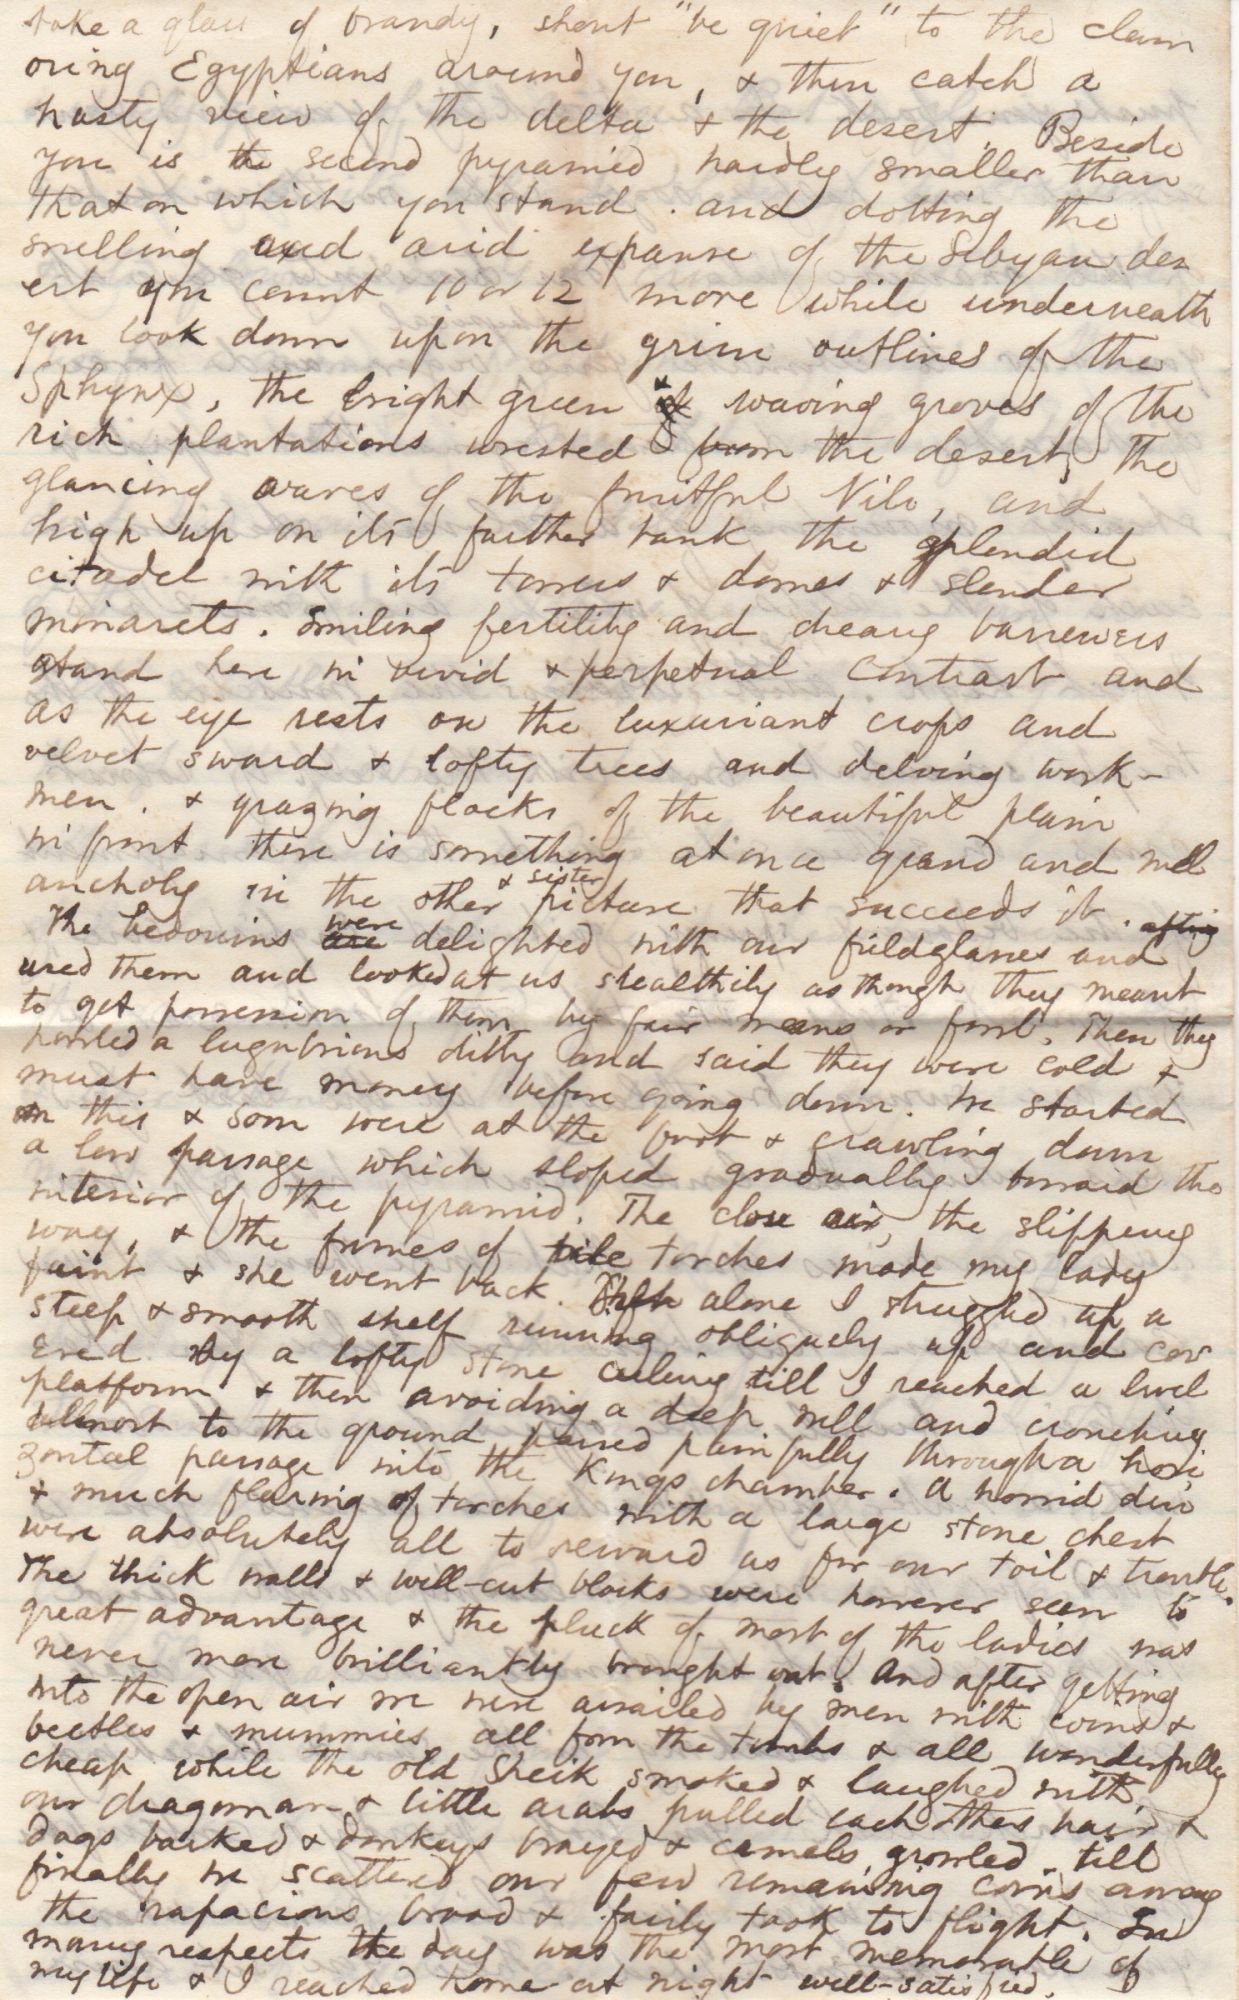 take a glass of brandy, shout "be quiet" to the clam
oring Egyptians around you, & then catch a
hasty view of the delta & the desert. Beside
you is the second pyramid hardly smaller than
that on which you stand. and dotting the
swelling and arid expanse of the Libyan des
ert you count 10 or 12 more while underneath
you look down upon the grim outlines of the
Sphynx, the bright green & waving groves of the
rich plantations wrested from the desert, the
glancing waves of the fruitful Nile, and
high up on its further bank the splendid
citadel with its towers & domes & slender
minarets. Smiling fertility and dreary barreness
stand here in vivid & perpetual contrast and
as the eye rests on the luxuriant crops and
velvet sward & lofty trees and delving work-
men. & grazing flocks of the beautiful plain
in front there is something at once grand and mel
ancholy in the other & sister picture that succeeds it.
The bedouins are were delighted with our fieldglasses and after
used them and looked at us stealthily as though they meant
to get possession of them by fair means or foul. Then they
howled a lugubrious ditty and said they were cold &
must have money before going down. We started
on this & soon were at the foot & crawling down
a low passage which sloped gradually toward the
interior of the pyramid. The close air, the slippery
way, & the fumes of torches made my lady
faint & she went back. Left alone I struggled up a
steep & smooth shelf running obliquely up and cov
ered by a lofty stone ceiling till I reached a level
platform & then avoiding a deep well and crouching
almost to the ground passed painfully through a hori
zontal passage into the Kings chamber. A horrid din
& much flaring of torches with a large stone chest
were absolutely all to reward us for our toil & trouble.
The thick walls & well-cut blocks were however seen to
great advantage & the pluck of most of the ladies was
never more brilliantly brought out. And after getting
into the open air we were assailed by men with coins &
beetles & mummies all from the tombs & all wonderfully
cheap while the old Sheik smoked & laughed with
our dragoman & little arabs pulled each others hair &
dogs barked & donkeys brayed & camels growled. till
finally we scattered our few remaining coins among
the rapacious brood & fairly took to flight. In
many respects the day was the most memorable of
my life & I reached home at night well-satisfied.